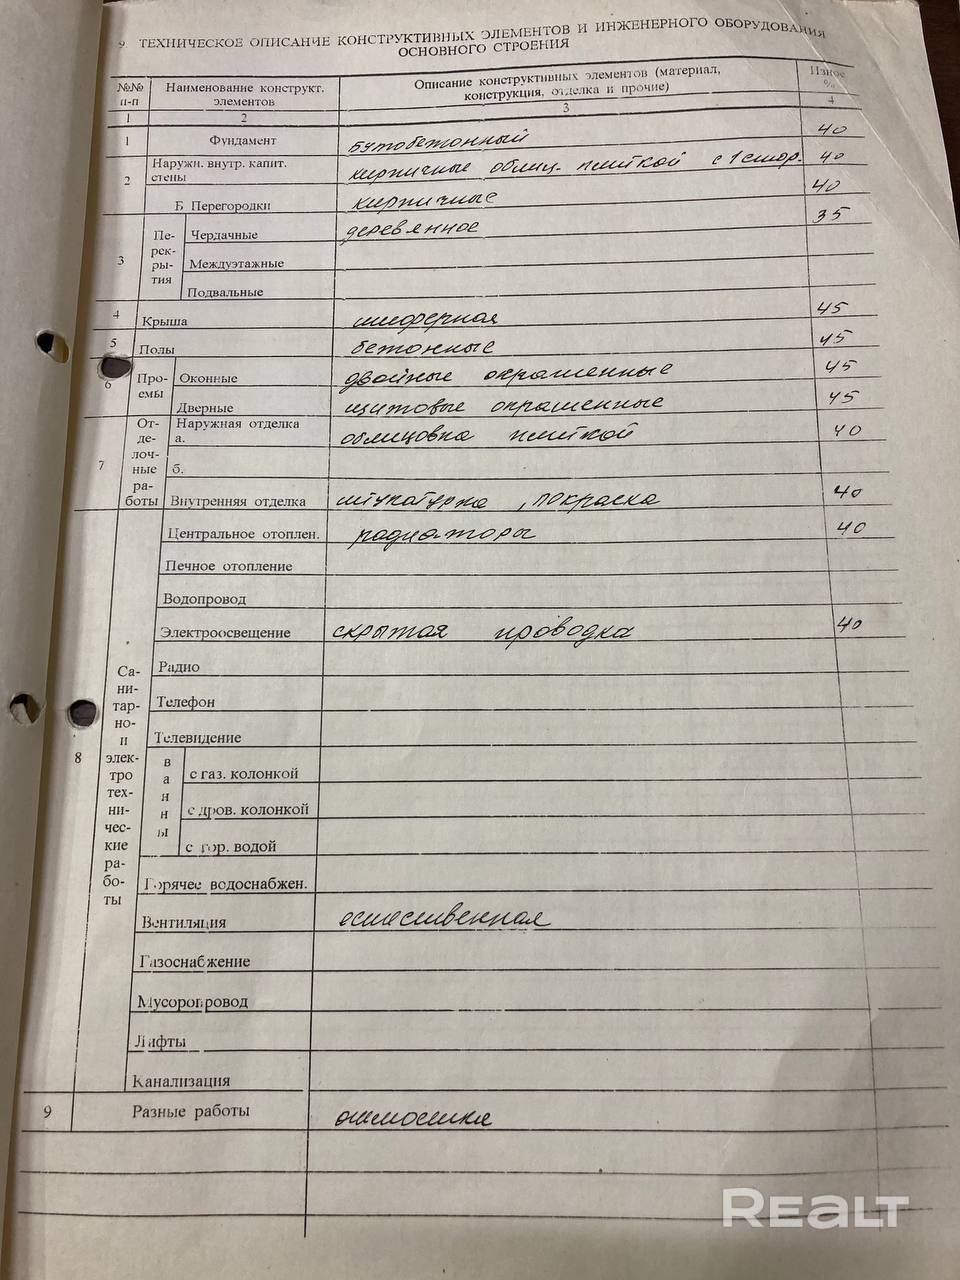 9. ТЕХНИЧЕСКОЕ ОПИСАНИЕ КОНСТРУКТИВНЫХ ЭЛЕМЕНТОВ И ИНЖЕНЕРНОГО ОБОРУДОВАНИЯ
ОСНОВНОГО СТРОЕНИЯ
№№ Наименование конструкт. Описание конструктивных элементов (материал, Износ
п-п элементов конструкция, отделка и прочие) %
1 2 3 4
1 Фундамент бутобетонный 40
Наружн. внутр. капит.
2 стены кирпичные облиц. плиткой с 1 стор. 40
Б Перегородки кирпичные 40
Пе- Чердачные деревянное 35
рек-
3 ры- Междуэтажные
тия Подвальные
4 Крыша шиферная 45
5 Полы бетонные 45
6 Про- Оконные двойные окрашенные 45
емы Дверные щитовые окрашенные 45
От- Наружная отделка
де- а. облицовка плиткой 40
лоч-
7 ные б.
ра-
боты Внутренняя отделка штукатурка, покраска 40
Центральное отоплен. радиаторы 40
Печное отопление
Водопровод
Электроосвещение скрытая проводка 40
Са- Радио
ни-
тар- Телефон
но-
и Телевидение
8 элек- в
тро а с газ. колонкой
тех- н
ни- н с дров. колонкой
чес- ы
кие с гор. водой
ра-
бо- Горячее водоснабжен.
ты
Вентиляция естественная
Газоснабжение
Мусоропровод
Лифты
Канализация
9 Разные работы отмостка
REALT